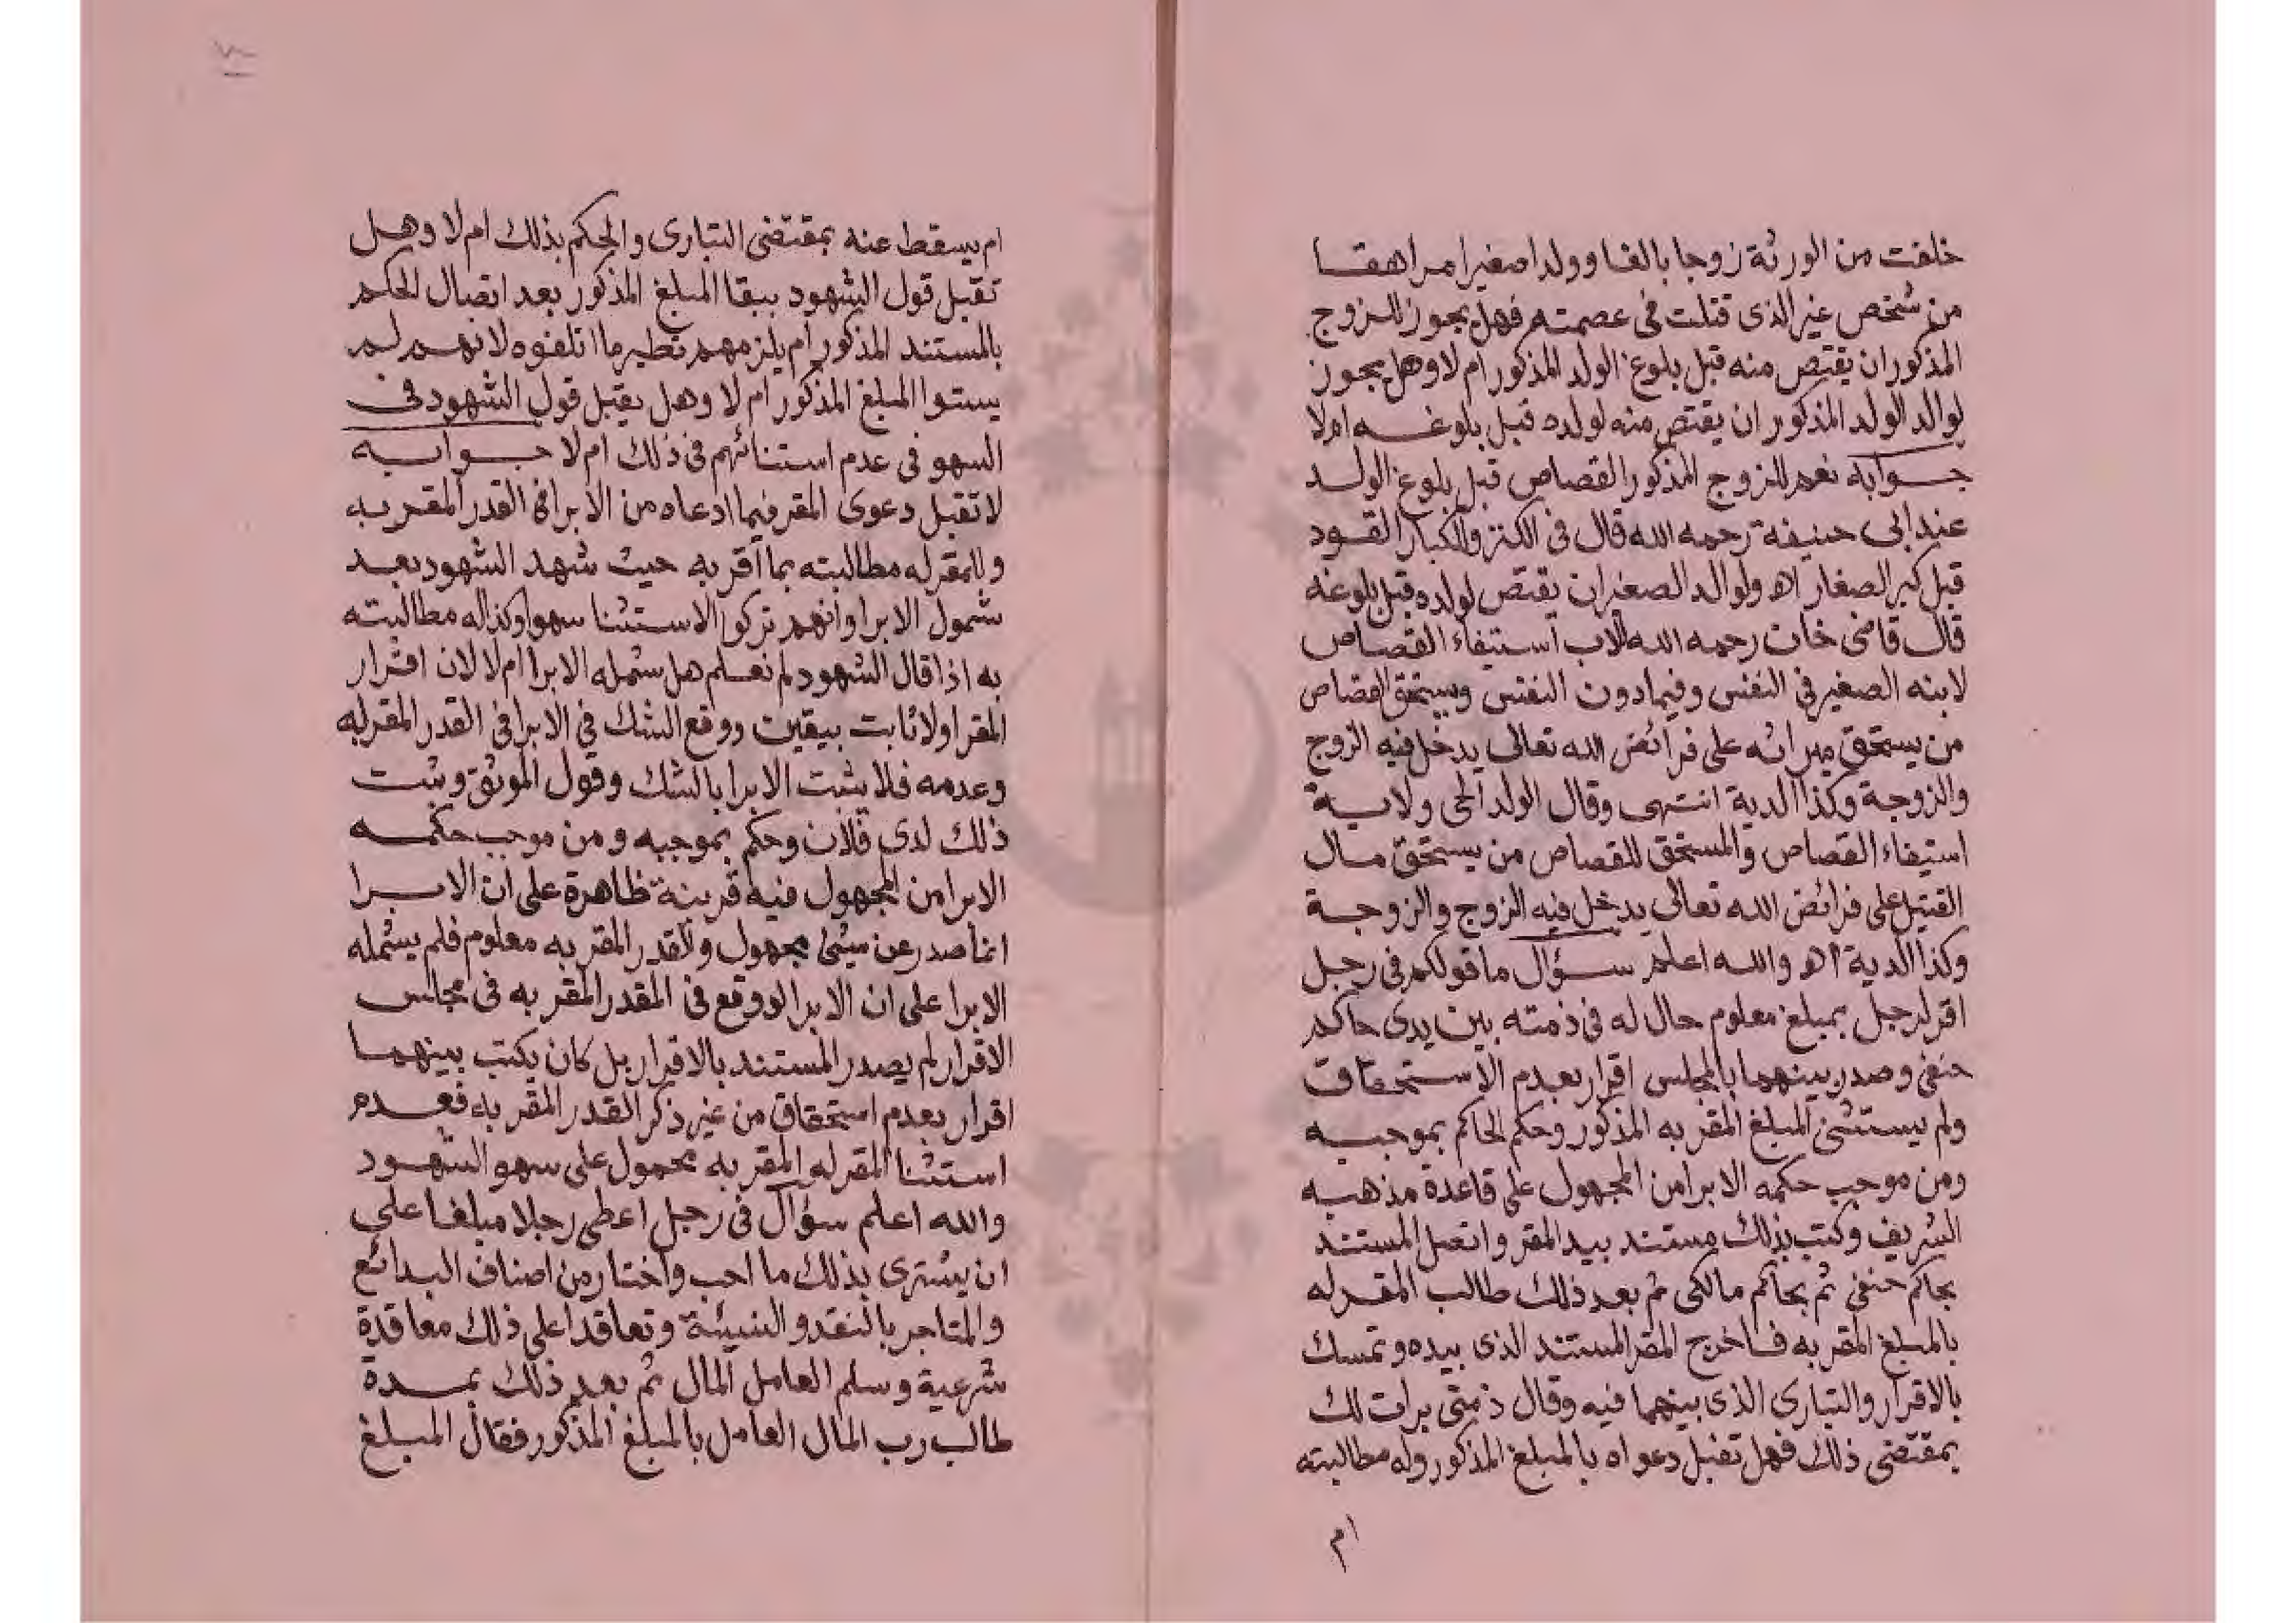 خلفت من الورثة زوجا بالغا وولدا صغيرا مراهقا
من شخص غير الذى قتلت فى عصمته فهل يجوز للزوج
المذكور ان يقتص منه قبل بلوغ الولد المذكور ام لا وهل يجوز
لوالد الولد المذكور ان يقتص منه لولده قبل بلوغه ام لا
جوابه نعم للزوج المذكور القصاص قبل بلوغ الولد
عند ابى حنيفة رحمه الله قال فى الكنز وللكبار القود
قبل كبر الصغار اه ولوالد الصغير ان يقتص لولده قبل بلوغه
قال قاضى خان رحمه الله للاب استيفاء القصاص
لابنه الصغير فى النفس وفيما دون النفس ويستحق القصاص
من يستحق ميراثه على فرائض الله تعالى يدخل فيه الزوج
والزوجة وكذا الدية انتهى وقال الولد الحى ولاية
استيفاء القصاص والمستحق للقصاص من يستحق مال
القتيل على فرائض الله تعالى يدخل فيه الزوج والزوجة
وكذا الدية اه والله اعلم سؤال ما قولكم فى رجل
اقر لرجل بمبلغ معلوم حال له فى ذمته بين يدى حاكم
حنفى وصدر بينهما بالمجلس اقرار بعدم الاستحقاق
ولم يستثنى المبلغ المقر به المذكور وحكم الحاكم بموجبه
ومن موجب حكمه الابرا من المجهول على قاعدة مذهبه
الشريف وكتب بذلك مستند بيد المقر واتصل المستند
بحاكم حنفى ثم بحاكم مالكى ثم بعد ذلك طالب المقر له
بالمبلغ المقر به فاخرج المقر المستند الذى بيده وتمسك
بالاقرار والتبارى الذى بينهما فيه وقال ذمتى برات لك
بمقتضى ذلك فهل تقبل دعواه بالمبلغ المذكور وله مطالبته
ام
ام يسقط عنه بمقتضى التبارى والحكم بذلك ام لا وهل
تقبل قول الشهود ببقا المبلغ المذكور بعد اتصال الحكم
بالمستند المذكور ام يلزمهم نظير ما اتلفوه لانهم لم
يستوا المبلغ المذكور ام لا وهل يقبل قول الشهود فى
السهو فى عدم استنائهم فى ذلك ام لا جوابه
لا تقبل دعوى المقر فيما ادعاه من الابرا فى القدر المقر به
وللمقر له مطالبته بما اقر به حيث شهد الشهود بعد
شمول الابرا وانهم تركوا الاستثنا سهوا وكذا له مطالبته
به اذا قال الشهود لم نعلم هل شمله الابرا ام لا لان اقرار
المقر اولا ثابت بيقين ووقع الشك فى الابرا فى القدر المقر به
وعدمه فلا يثبت الابرا بالشك وقول الموثق وثبت
ذلك لدى فلان وحكم بموجبه ومن موجب حكمه
الابرا من المجهول فيه قرينة ظاهرة على ان الابرا
انما صدر عن شئ مجهول والقدر المقر به معلوم فلم يشمله
الابرا على ان الابرا لو وقع فى المقدر المقر به فى مجلس
الاقرار لم يصدر المستند بالاقرار بل كان يكتب بينهما
اقرار بعدم استحقاق من غير ذكر القدر المقر به فعدم
استثنا المقر له المقر به محمول على سهو الشهود
والله اعلم سؤال فى رجل اعطى رجلا مبلغا على
ان يشترى بذلك ما احب واختار من اصناف البدائع
والمتاجر بالنقد والنسيئة وتعاقدا على ذلك معاقدة
شرعية وسلم العامل المال ثم بعد ذلك بمدة
طالب رب المال العامل بالمبلغ المذكور فقال المبلغ